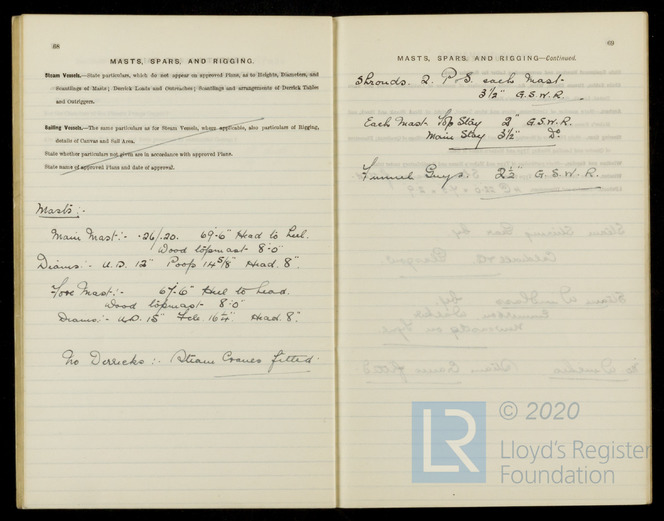 68
MASTS, SPARS, AND RIGGING.
Steam Vessels.—State particulars, which do not appear on approved Plans, as to Heights, Diameters, and
Scantlings of Masts; Derrick Loads and Outreaches; Scantlings and arrangements of Derrick Tables
and Outriggers.
Sailing Vessels.—The same particulars as for Steam Vessels, where applicable, also particulars of Rigging,
details of Canvas and Sail Area.
State whether particulars not given are in accordance with approved Plans.
State name of approved Plans and date of approval.
Masts:-
Main Mast:- .26/.20. 69'-6" Head to heel.
Wood topmast 8'-0"
Diams:- U.D. 12" Poop 14 5/8" Head. 8"
Fore Mast:- 67'-6" Heel to head.
Wood topmast 8'-0"
Diams:- U.D. 15" Fcle. 16 1/4" Head. 8"
No Derricks:- Steam Cranes fitted.
69
MASTS, SPARS, AND RIGGING—Continued.
Shrouds. 2. P & S. each Mast-
3½" G.S.W.R.
Each Mast Top Stay 2" G.S.W.R.
Main Stay 3½" Do.
Funnel Guys. 2½" G.S.W.R.
LR
© 2020
Lloyd's Register
Foundation